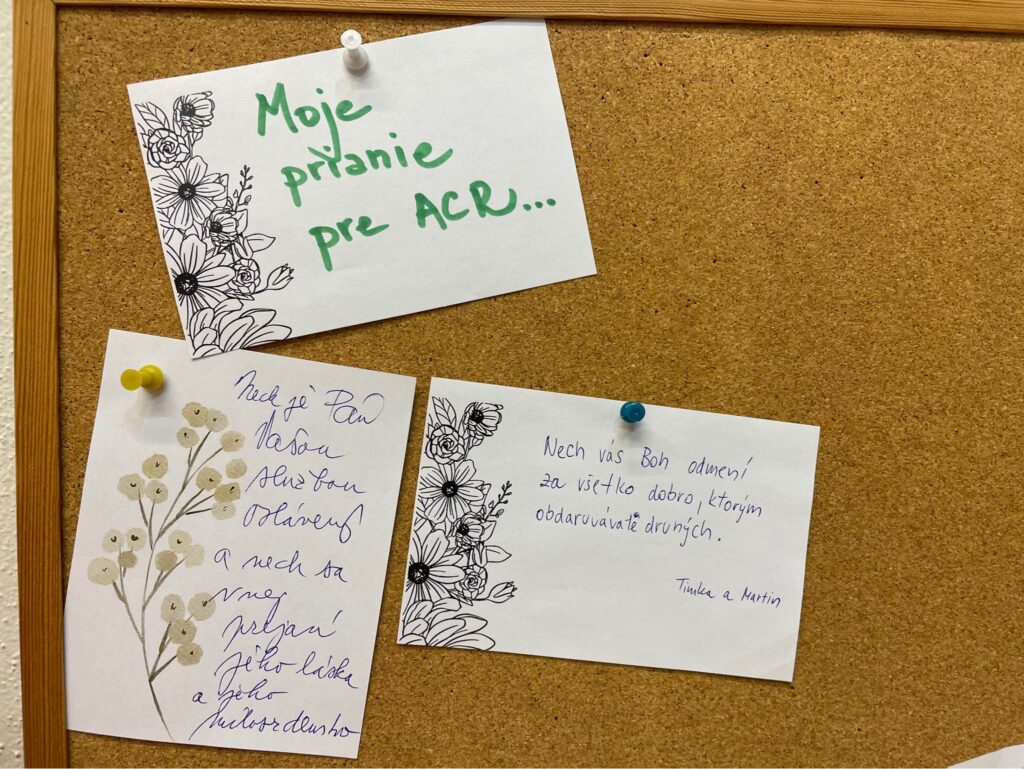 Moje
prianie
pre ACR...
Nech je Pán
Vašou
službou
oslávený
a nech sa
v nej
prejaví
jeho láska
a jeho
milosrdenstvo
Nech vás Boh odmení
za všetko dobro, ktorým
obdaruvávate druhých.
Timka a Martin